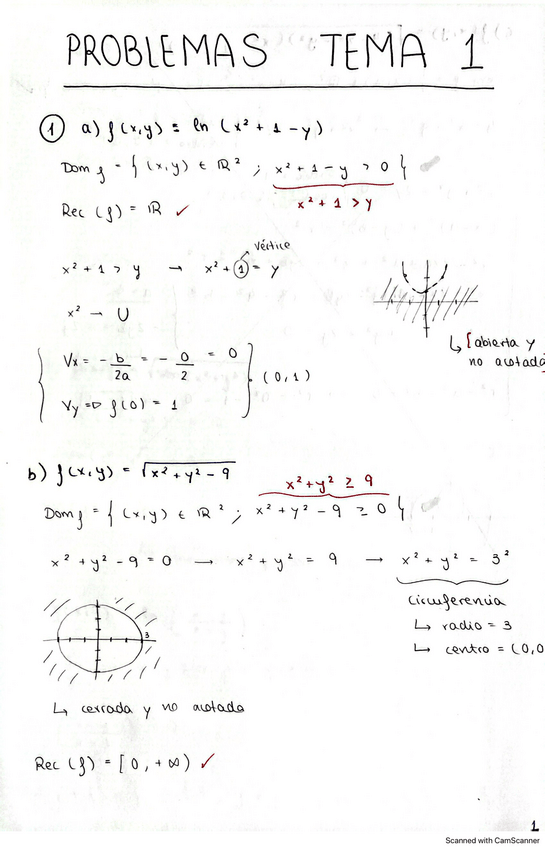 PROBLEMAS TEMA 1
① a) f(x,y) = ln (x² + 1 - y)
Dom f = { (x,y) ∈ ℝ² ; x² + 1 - y > 0 }
x² + 1 > y
Rec (f) = ℝ ✓
vértice
x² + 1 > y → x² + 1 = y
x² → ∪
↳ [abierta y
no acotada
Vx = - b/2a = - 0/2 = 0
(0,1)
Vy => f(0) = 1
b) f(x,y) = √x² + y² - 9
x² + y² ≥ 9
Dom f = { (x,y) ∈ ℝ² ; x² + y² - 9 ≥ 0 }
x² + y² - 9 = 0 → x² + y² = 9 → x² + y² = 3²
circunferencia
↳ radio = 3
↳ centro = (0,0
3
↳ cerrada y no acotada
Rec (f) = [0, +∞) ✓
1
Scanned with CamScanner